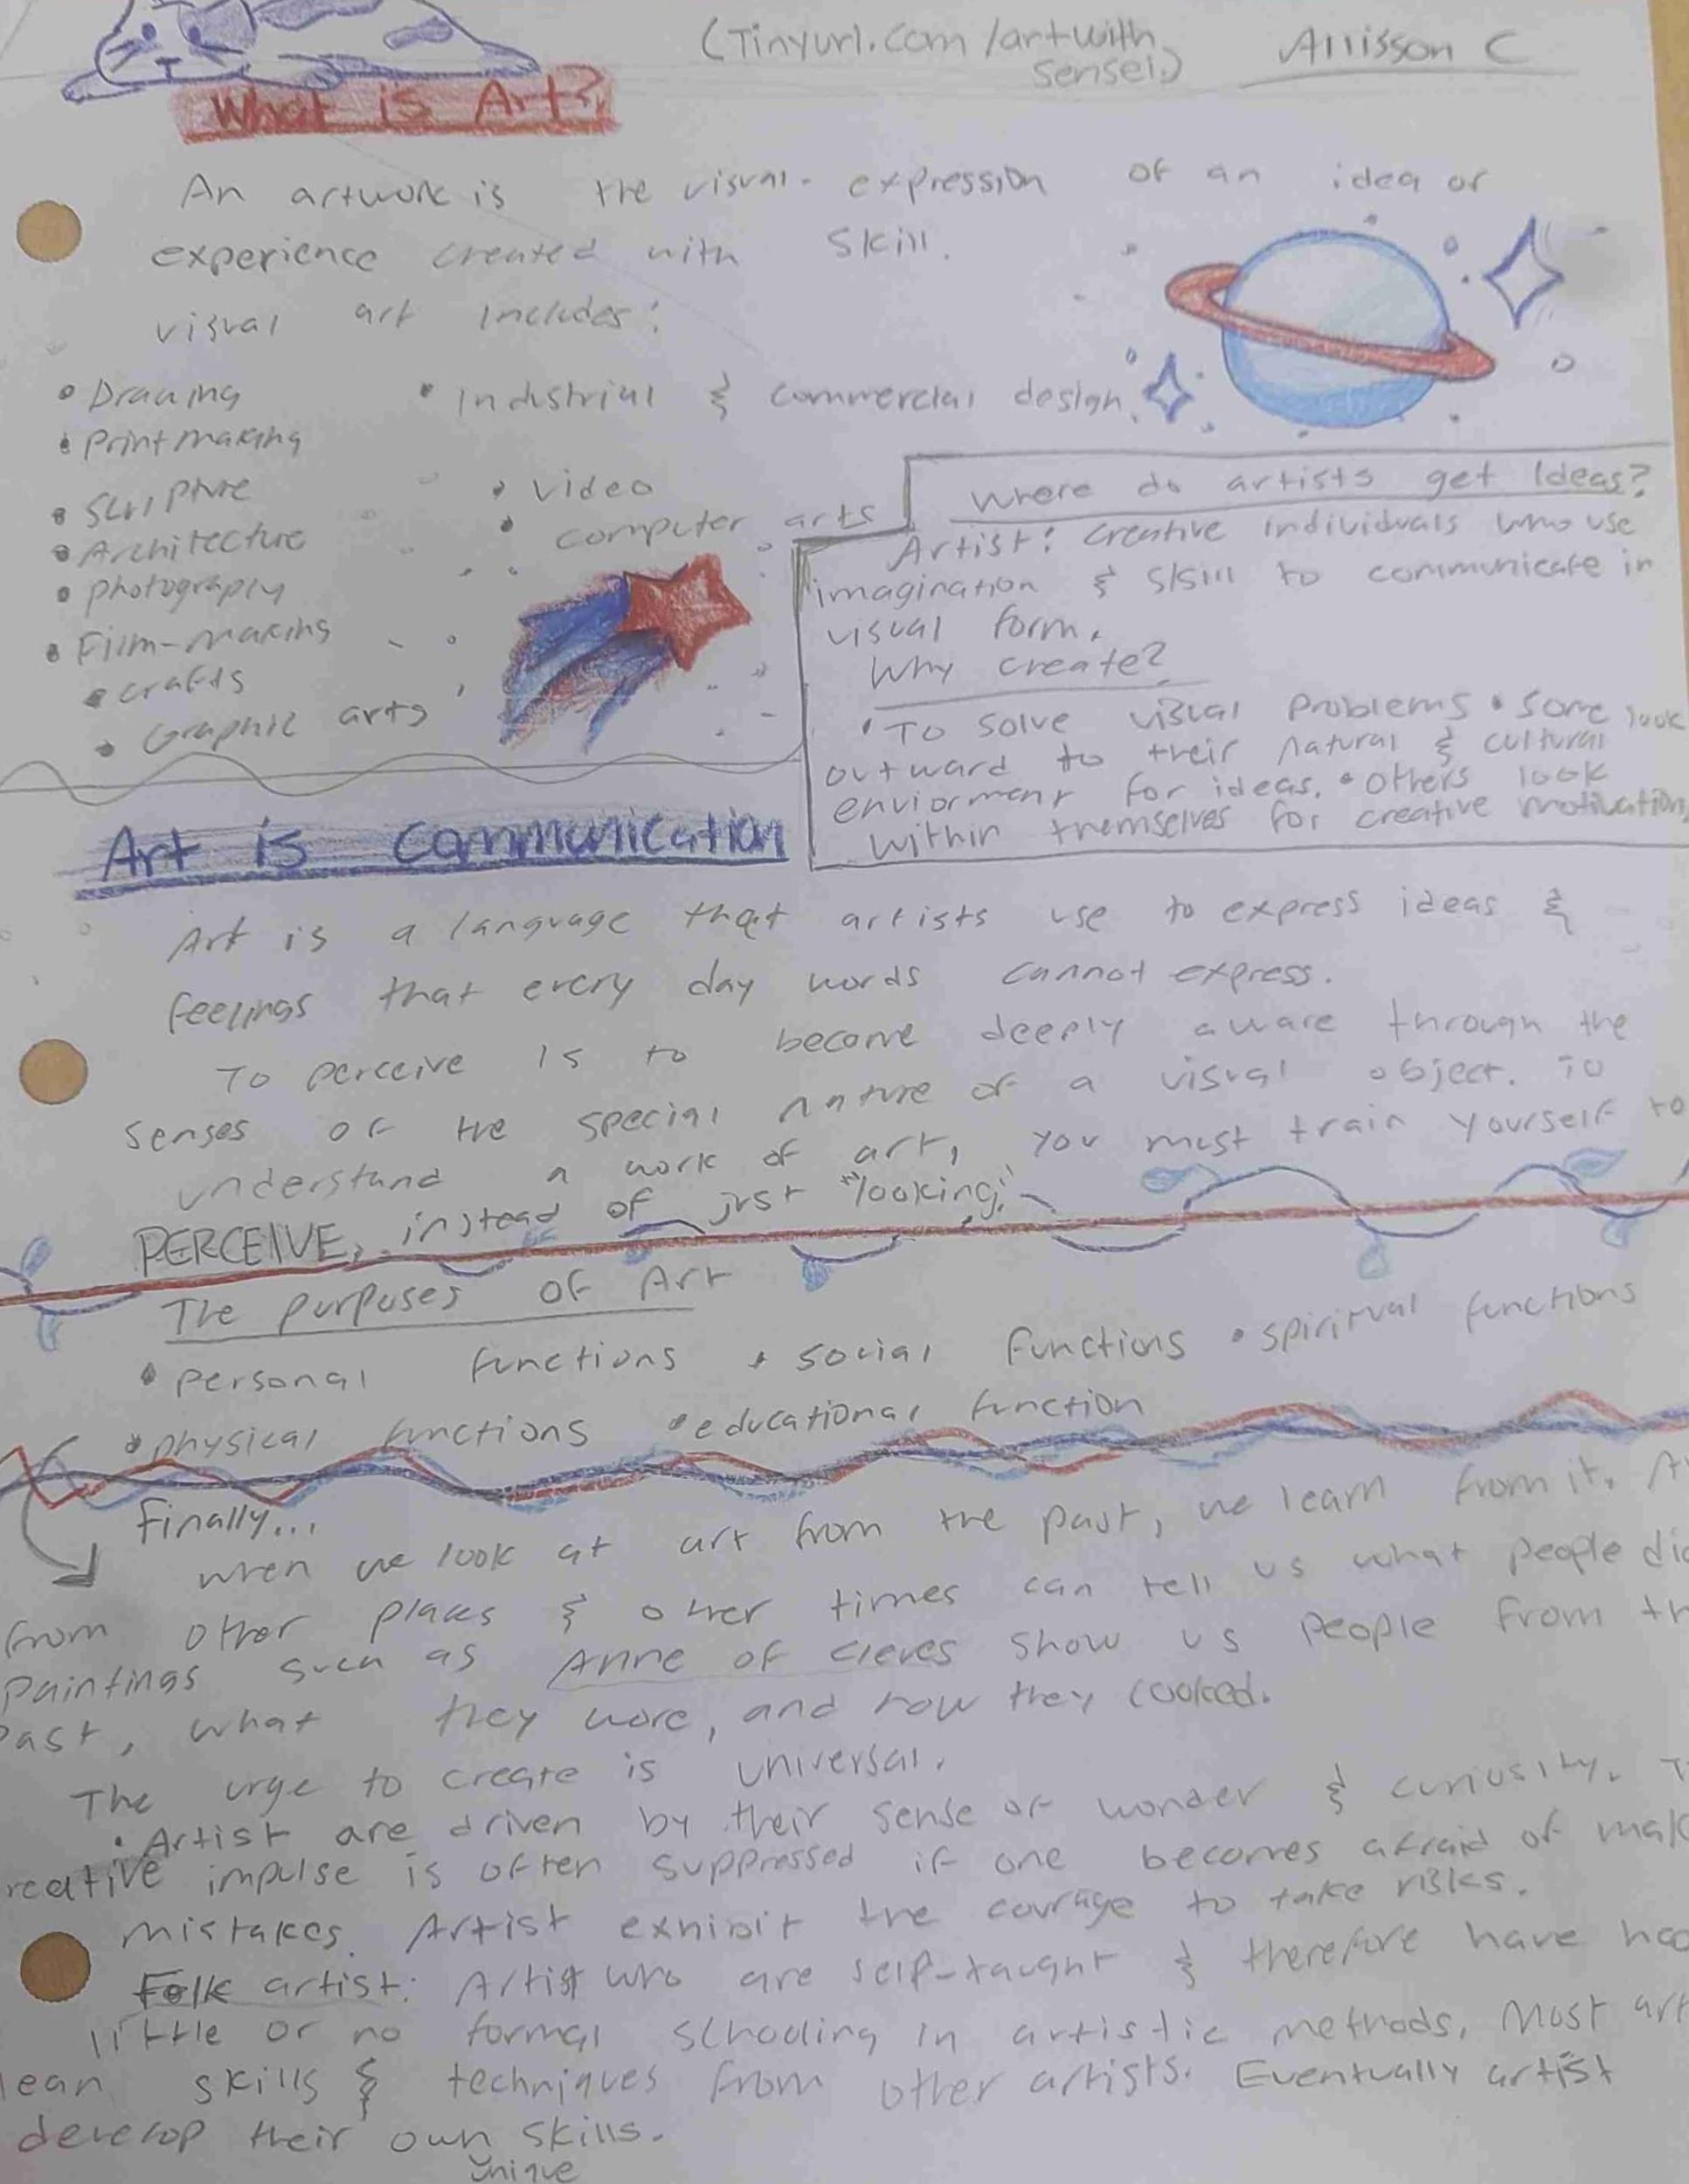 (Tinyurl.com/artwith
sensei)
Allisson C
What is Art?
An artwork is the visual expression of an idea or
experience created with skill.
visual art includes:
• Drawing
• Printmaking
• Sculpture
• Architecture
• photography
• Film-making
• crafts
• Graphic arts
• Industrial & commercial design
• video
• computer arts
Where do artists get Ideas?
Artist: creative individuals who use
imagination & skill to communicate in
visual form.
Why create?
• To solve visual problems • some look
outward to their natural & cultural
enviorment for ideas. • others look
within themselves for creative motivation,
Art is communication
Art is a language that artists use to express ideas &
feelings that every day words cannot express.
To perceive is to become deeply aware through the
senses of the special nature of a visual object. To
understand a work of art, you must train yourself to
PERCEIVE, instead of just "looking."
The purposes of Art
• personal functions • social functions • spiritual functions
• physical functions • educational function
Finally...
when we look at art from the past, we learn from it.
from other places & other times can tell us what people
Paintings such as Anne of cleves show us people from
past, what they wore, and how they cooked.
The urge to create is universal.
• Artist are driven by their sense of wonder & curiosity.
reative impulse is often suppressed if one becomes afraid of
mistakes. Artist exhibit the courage to take risks.
Folk artist: Artist who are self-taught & therefore have
little or no formal schooling in artistic methods. Most
lean skills & techniques from other artists. Eventually artist
develop their own skills.
unique